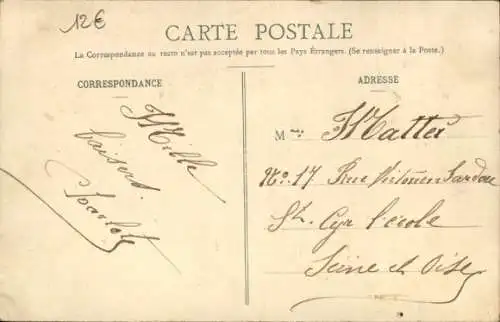 12€
CARTE POSTALE
La Correspondance au recto n'est pas acceptée par tous les Pays Étrangers. (Se renseigner à la Poste.)
CORRESPONDANCE
Mille
baisers
ADRESSE
Mme Matter
No. 17 Rue Sardou
St. Cyr l'école
Seine et Oise